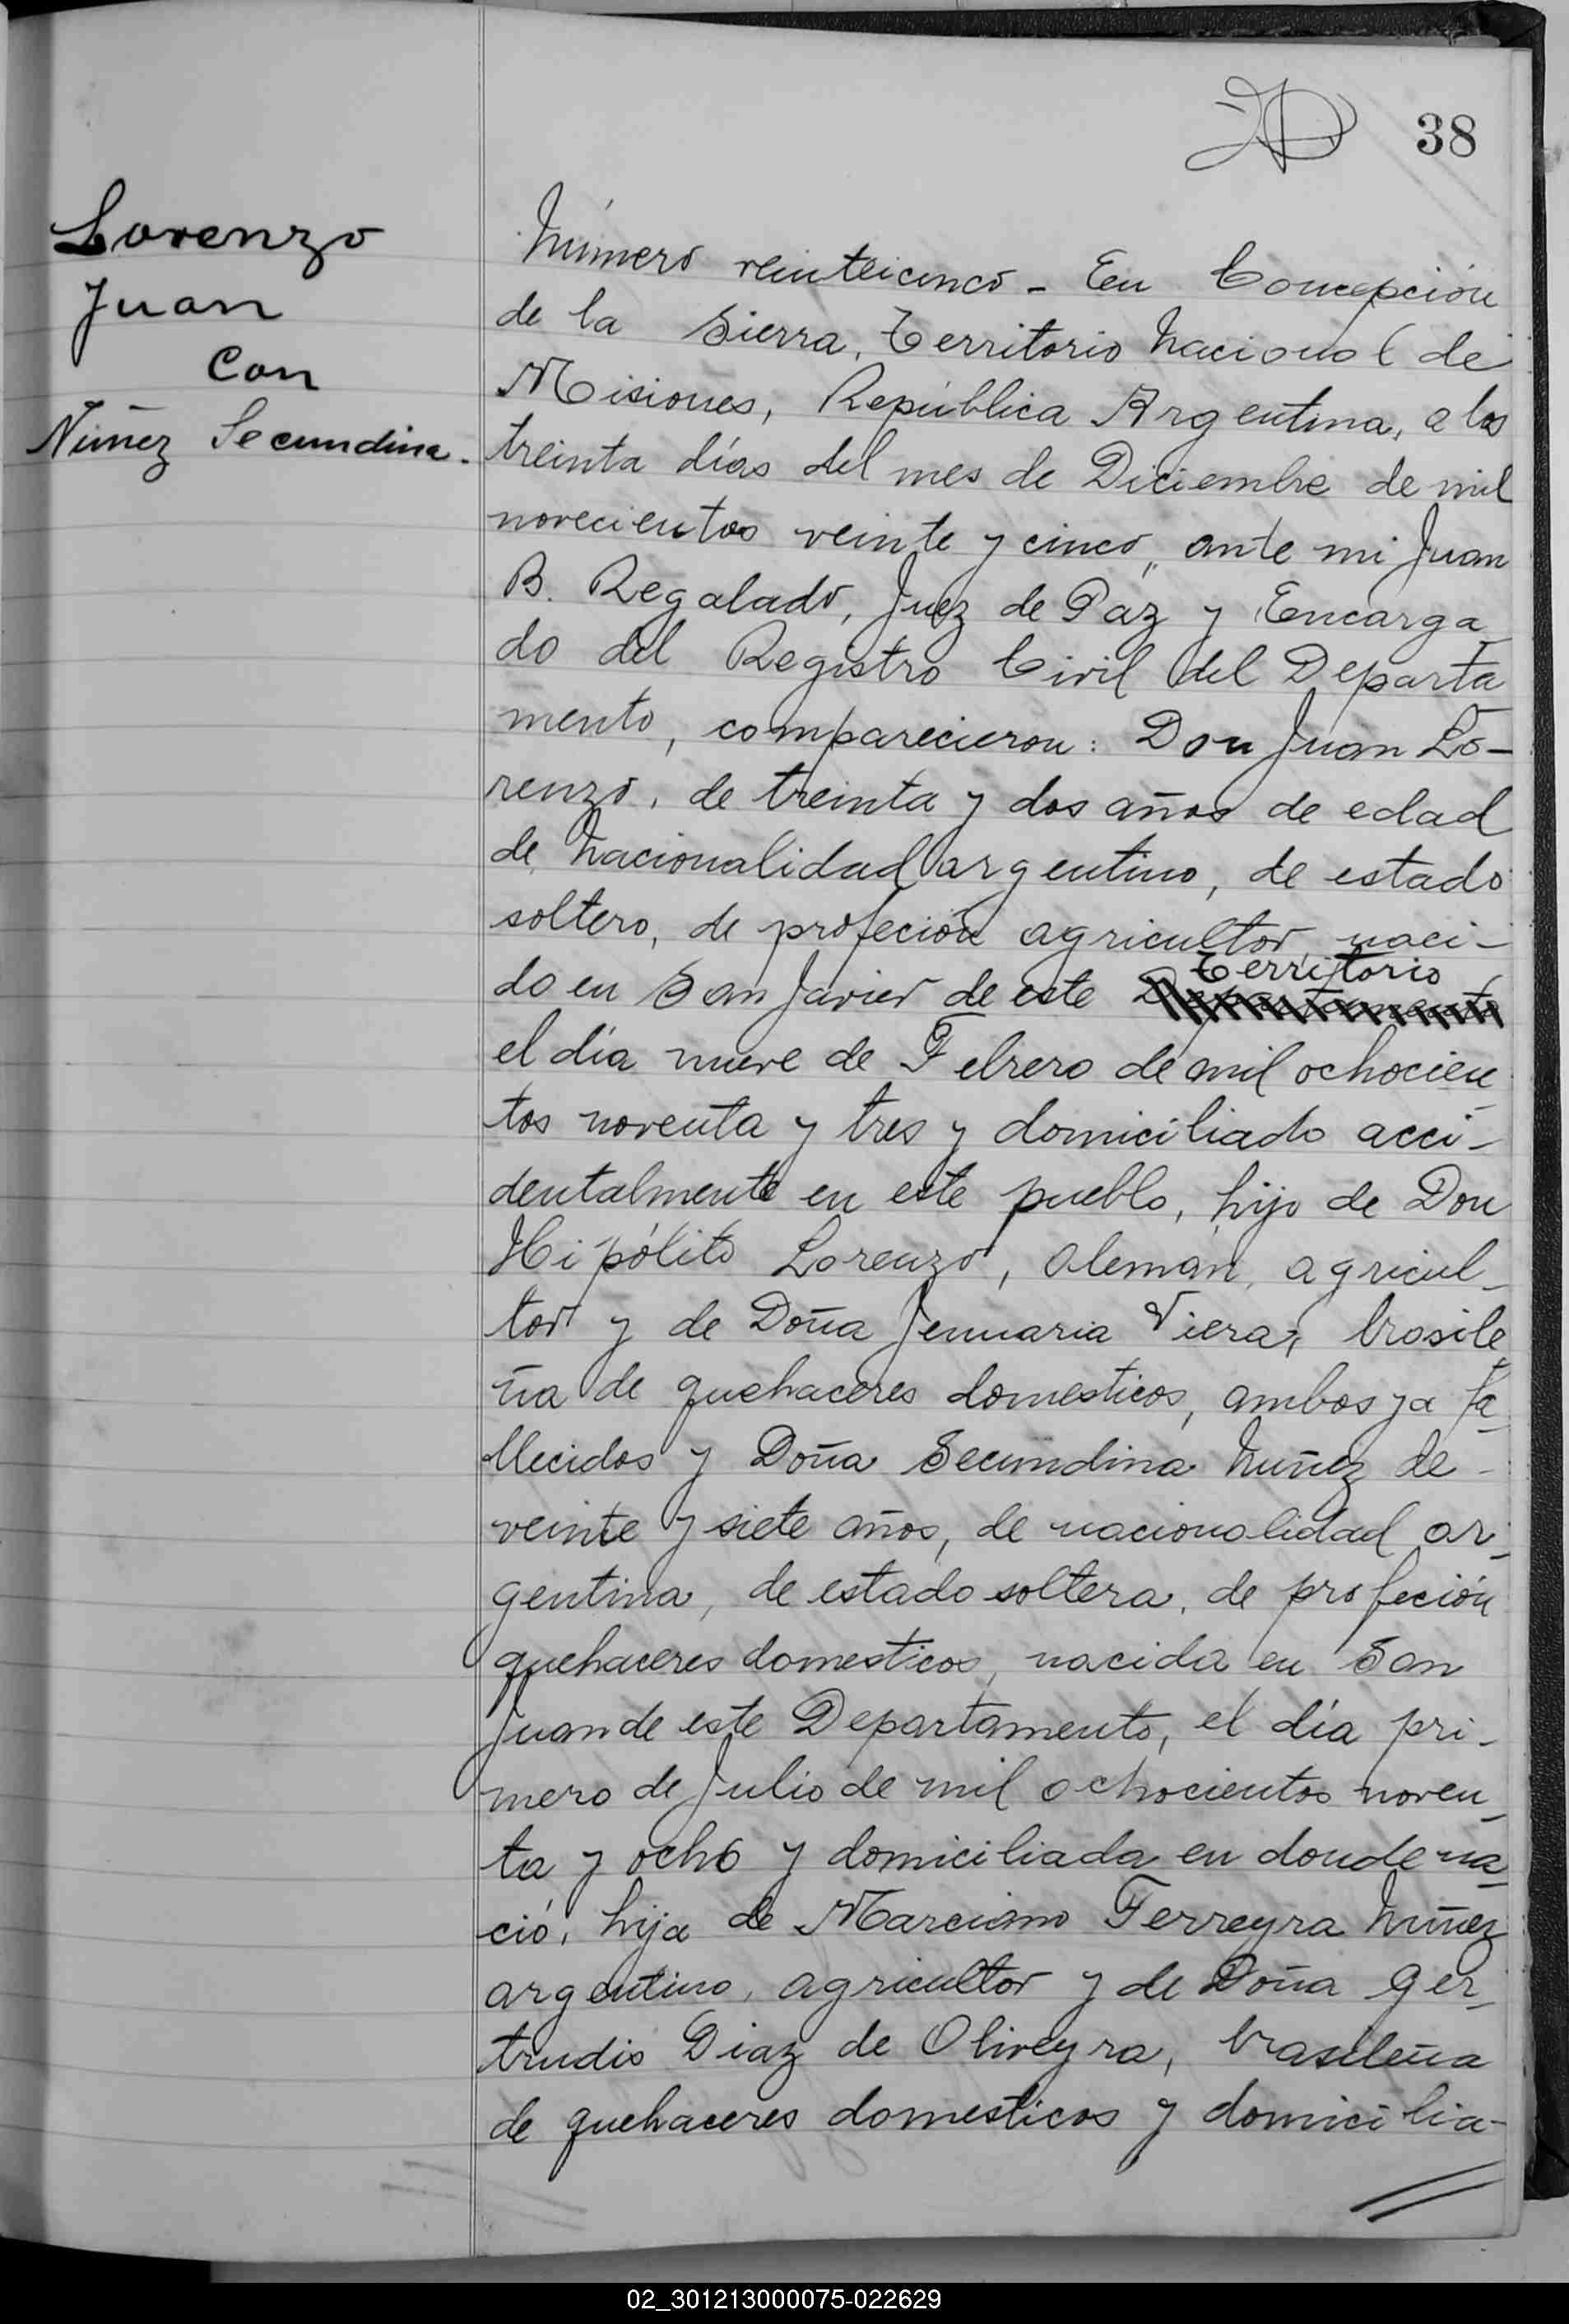 38
Lorenzo
Juan
Con
Núñez Secundina.
Número veinteicinco - En Concepción
de la Sierra, Territorio Nacional de
Misiones, República Argentina, a los
treinta días del mes de Diciembre de mil
novecientos veinte y cinco, ante mi Juan
B. Regalado, Juez de Paz y Encarga_
do del Registro Civil del Departa_
mento, comparecieron: Don Juan Lo-
renzo, de treinta y dos años de edad
de Nacionalidad argentino, de estado
soltero, de profeción agricultor naci-
do en San Javier de este Territorio
el día nueve de Febrero de mil ochocien_
tos noventa y tres y domiciliado acci-
dentalmente en este pueblo, hijo de Don
Hipólito Lorenzo, Alemán, agricul_
tor y de Doña Jenuaria Viera, brasile_
ña de quehaceres domesticos, ambos ya fa_
llecidos y Doña Secundina Nuñez de -
veinte y siete años, de nacionalidad ar_
gentina, de estado soltera, de profeción
quehaceres domesticos, nacida en San
Juan de este Departamento, el día pri-
mero de Julio de mil ochocientos noven_
ta y ocho y domiciliada en donde na_
ció, hija de Marciano Ferreyra Nuñez
argentino, agricultor y de Doña Ger_
trudis Diaz de Oliveyra, brasileña
de quehaceres domesticos y domicilia-
02_301213000075-022629